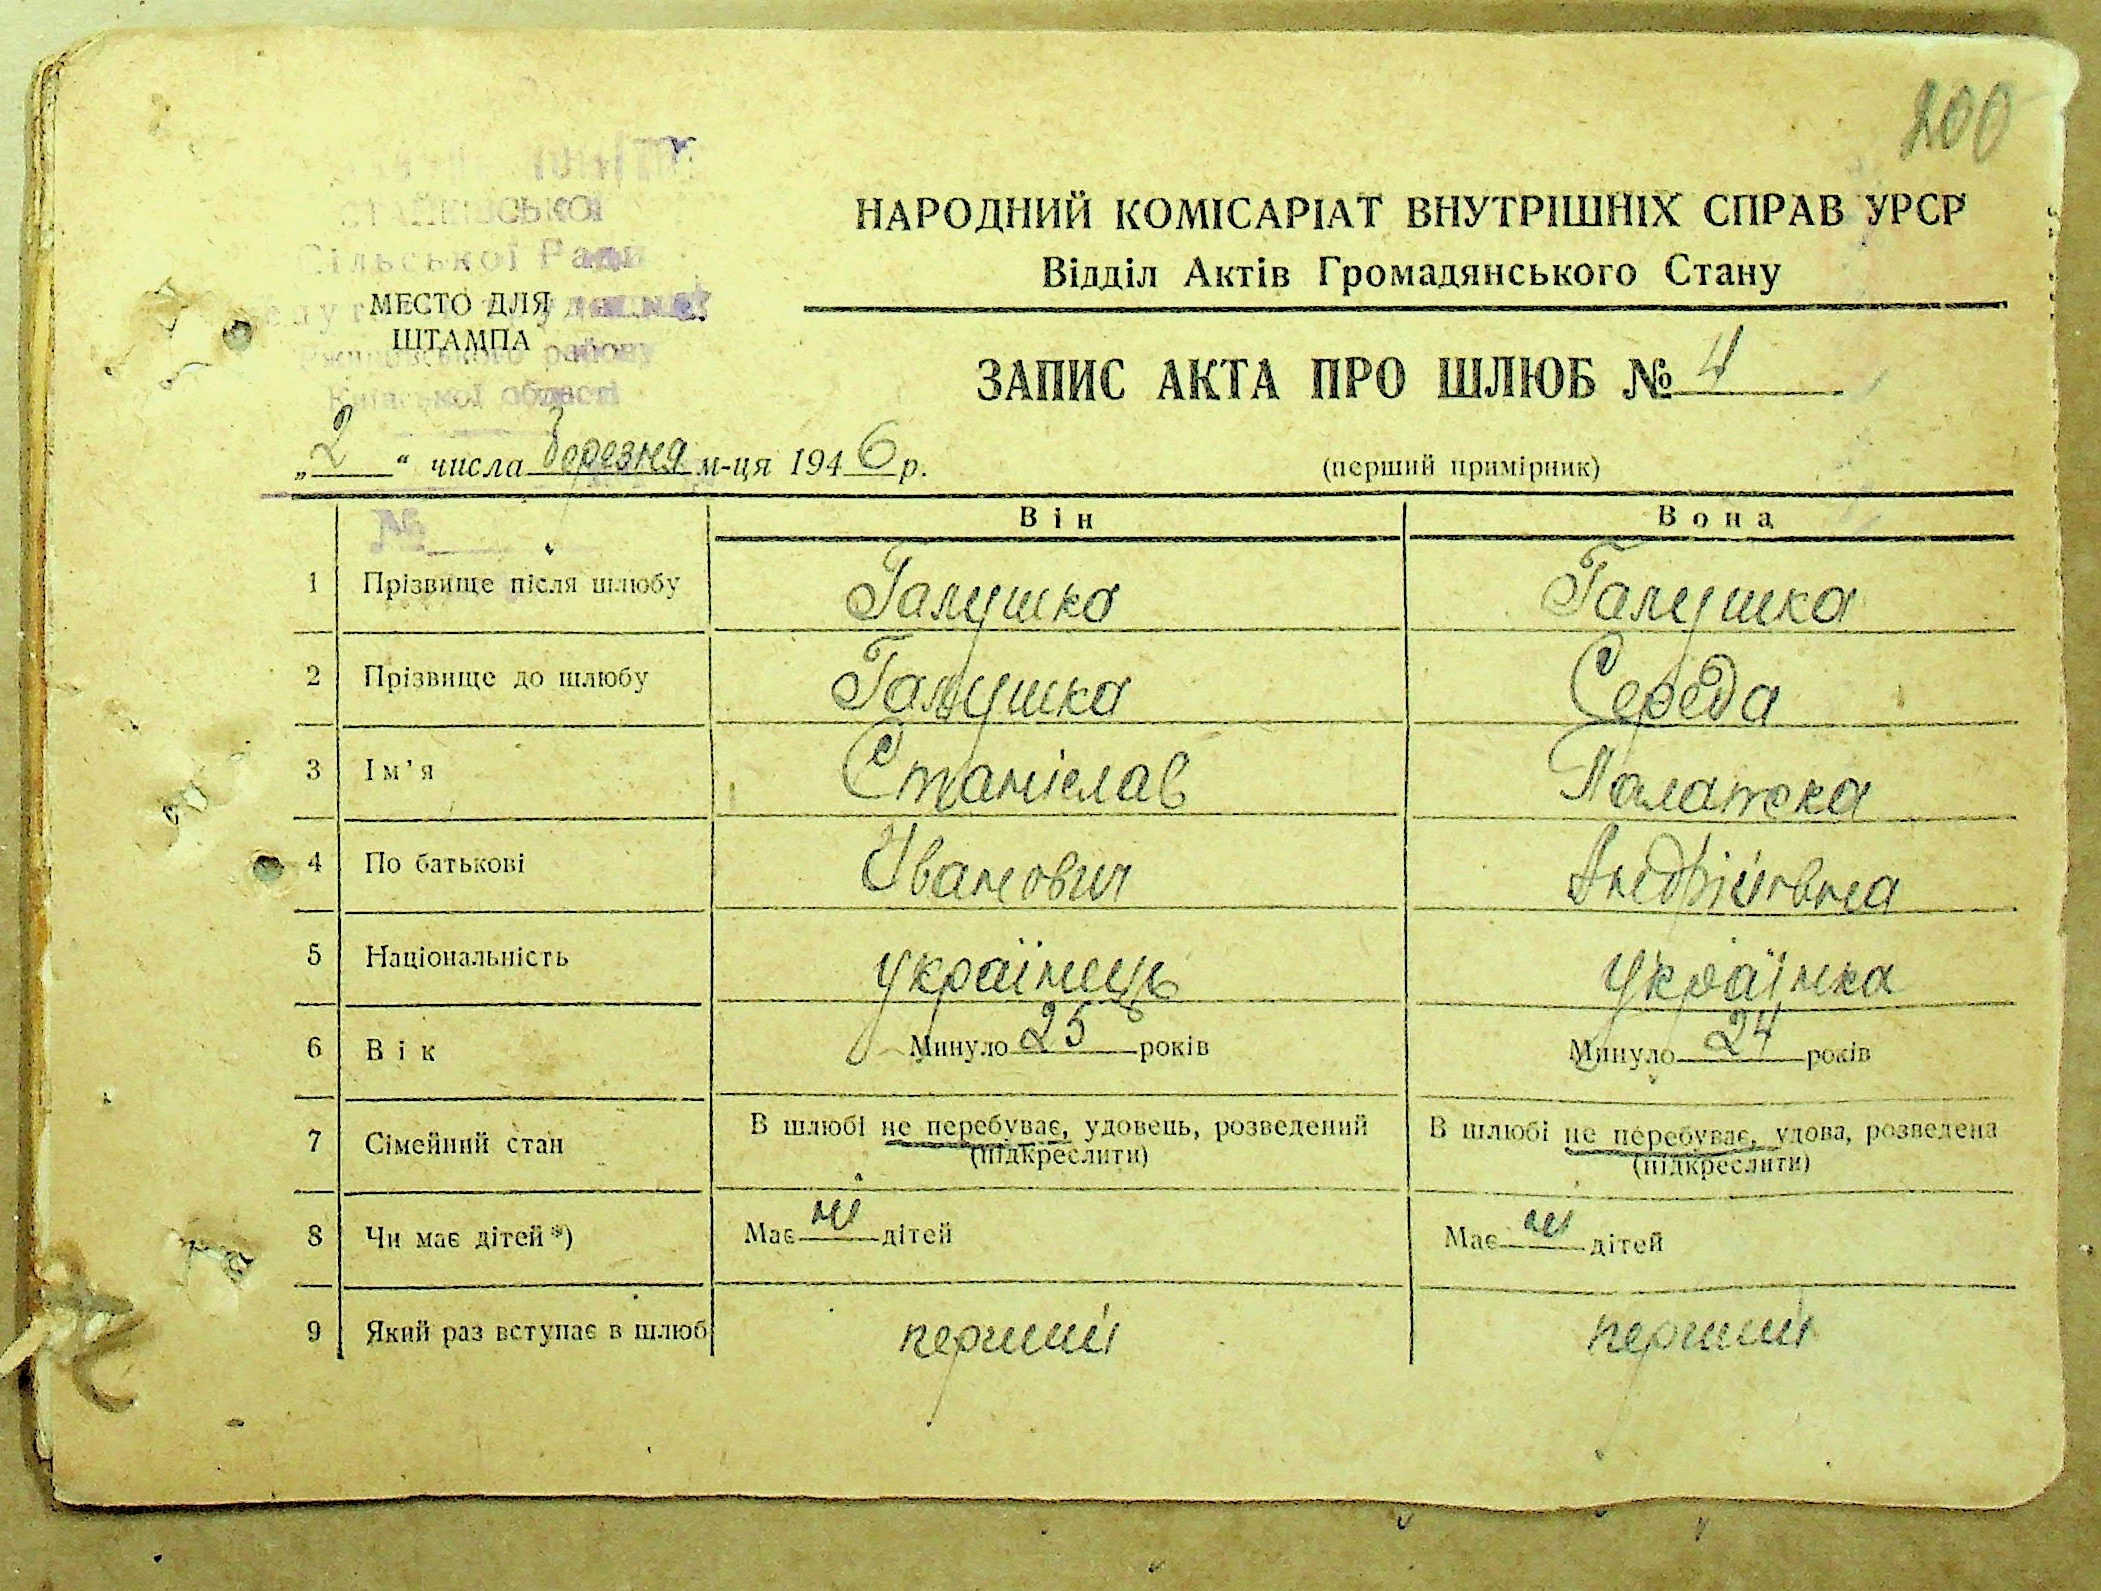 200
СТАЙКІВСЬКОЇ
Сільської Ради
МЕСТО ДЛЯ
ШТАМПА
району
Київської області
НАРОДНИЙ КОМІСАРІАТ ВНУТРІШНІХ СПРАВ УРСР
Відділ Актів Громадянського Стану
ЗАПИС АКТА ПРО ШЛЮБ № 4
„2“ числа березня м-ця 1946 р.
(перший примірник)
№
Він Вона
1 Прізвище після шлюбу Галушко Галушка
2 Прізвище до шлюбу Галушка Середа
3 Ім’я Станіслав Палажка
4 По батькові Иванович Андріївна
5 Національність українець українка
6 Вік Минуло 25 років Минуло 24 років
7 Сімейний стан В шлюбі не перебуває, удовець, розведений В шлюбі не перебуває, удова, розведена
(підкреслити) (підкреслити)
8 Чи має дітей*) Має ні дітей Має ні дітей
9 Який раз вступає в шлюб перший перший